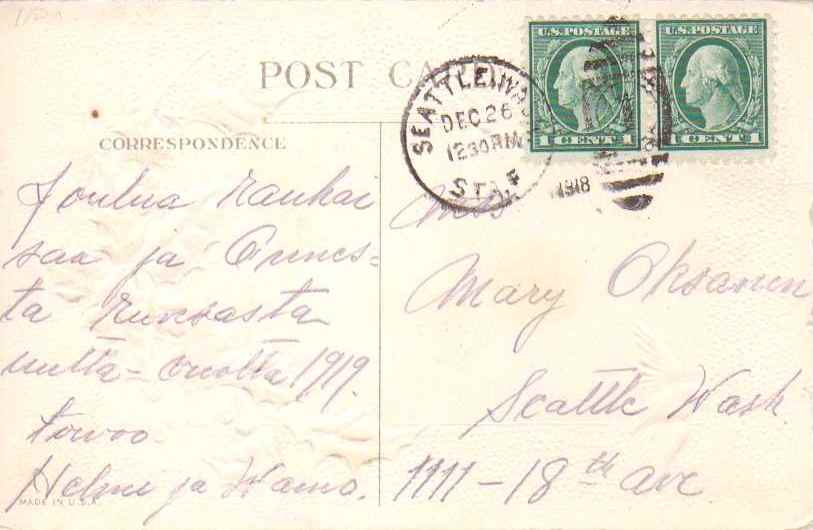 POST CARD
U.S. POSTAGE U.S. POSTAGE
1 CENT 1 1 CENT 1
SEATTLE, WA
DEC 26
12 30 AM
STA. F
1918
CORRESPONDENCE
Joulua rauhai
saa ja Onnes-
ta runsasta
uutta-vuotta 1919.
toivoo
Helmi ja Waino.
MADE IN U.S.A.
Miss
Mary Oksanen
Seattle Wash.
1111-18th ave